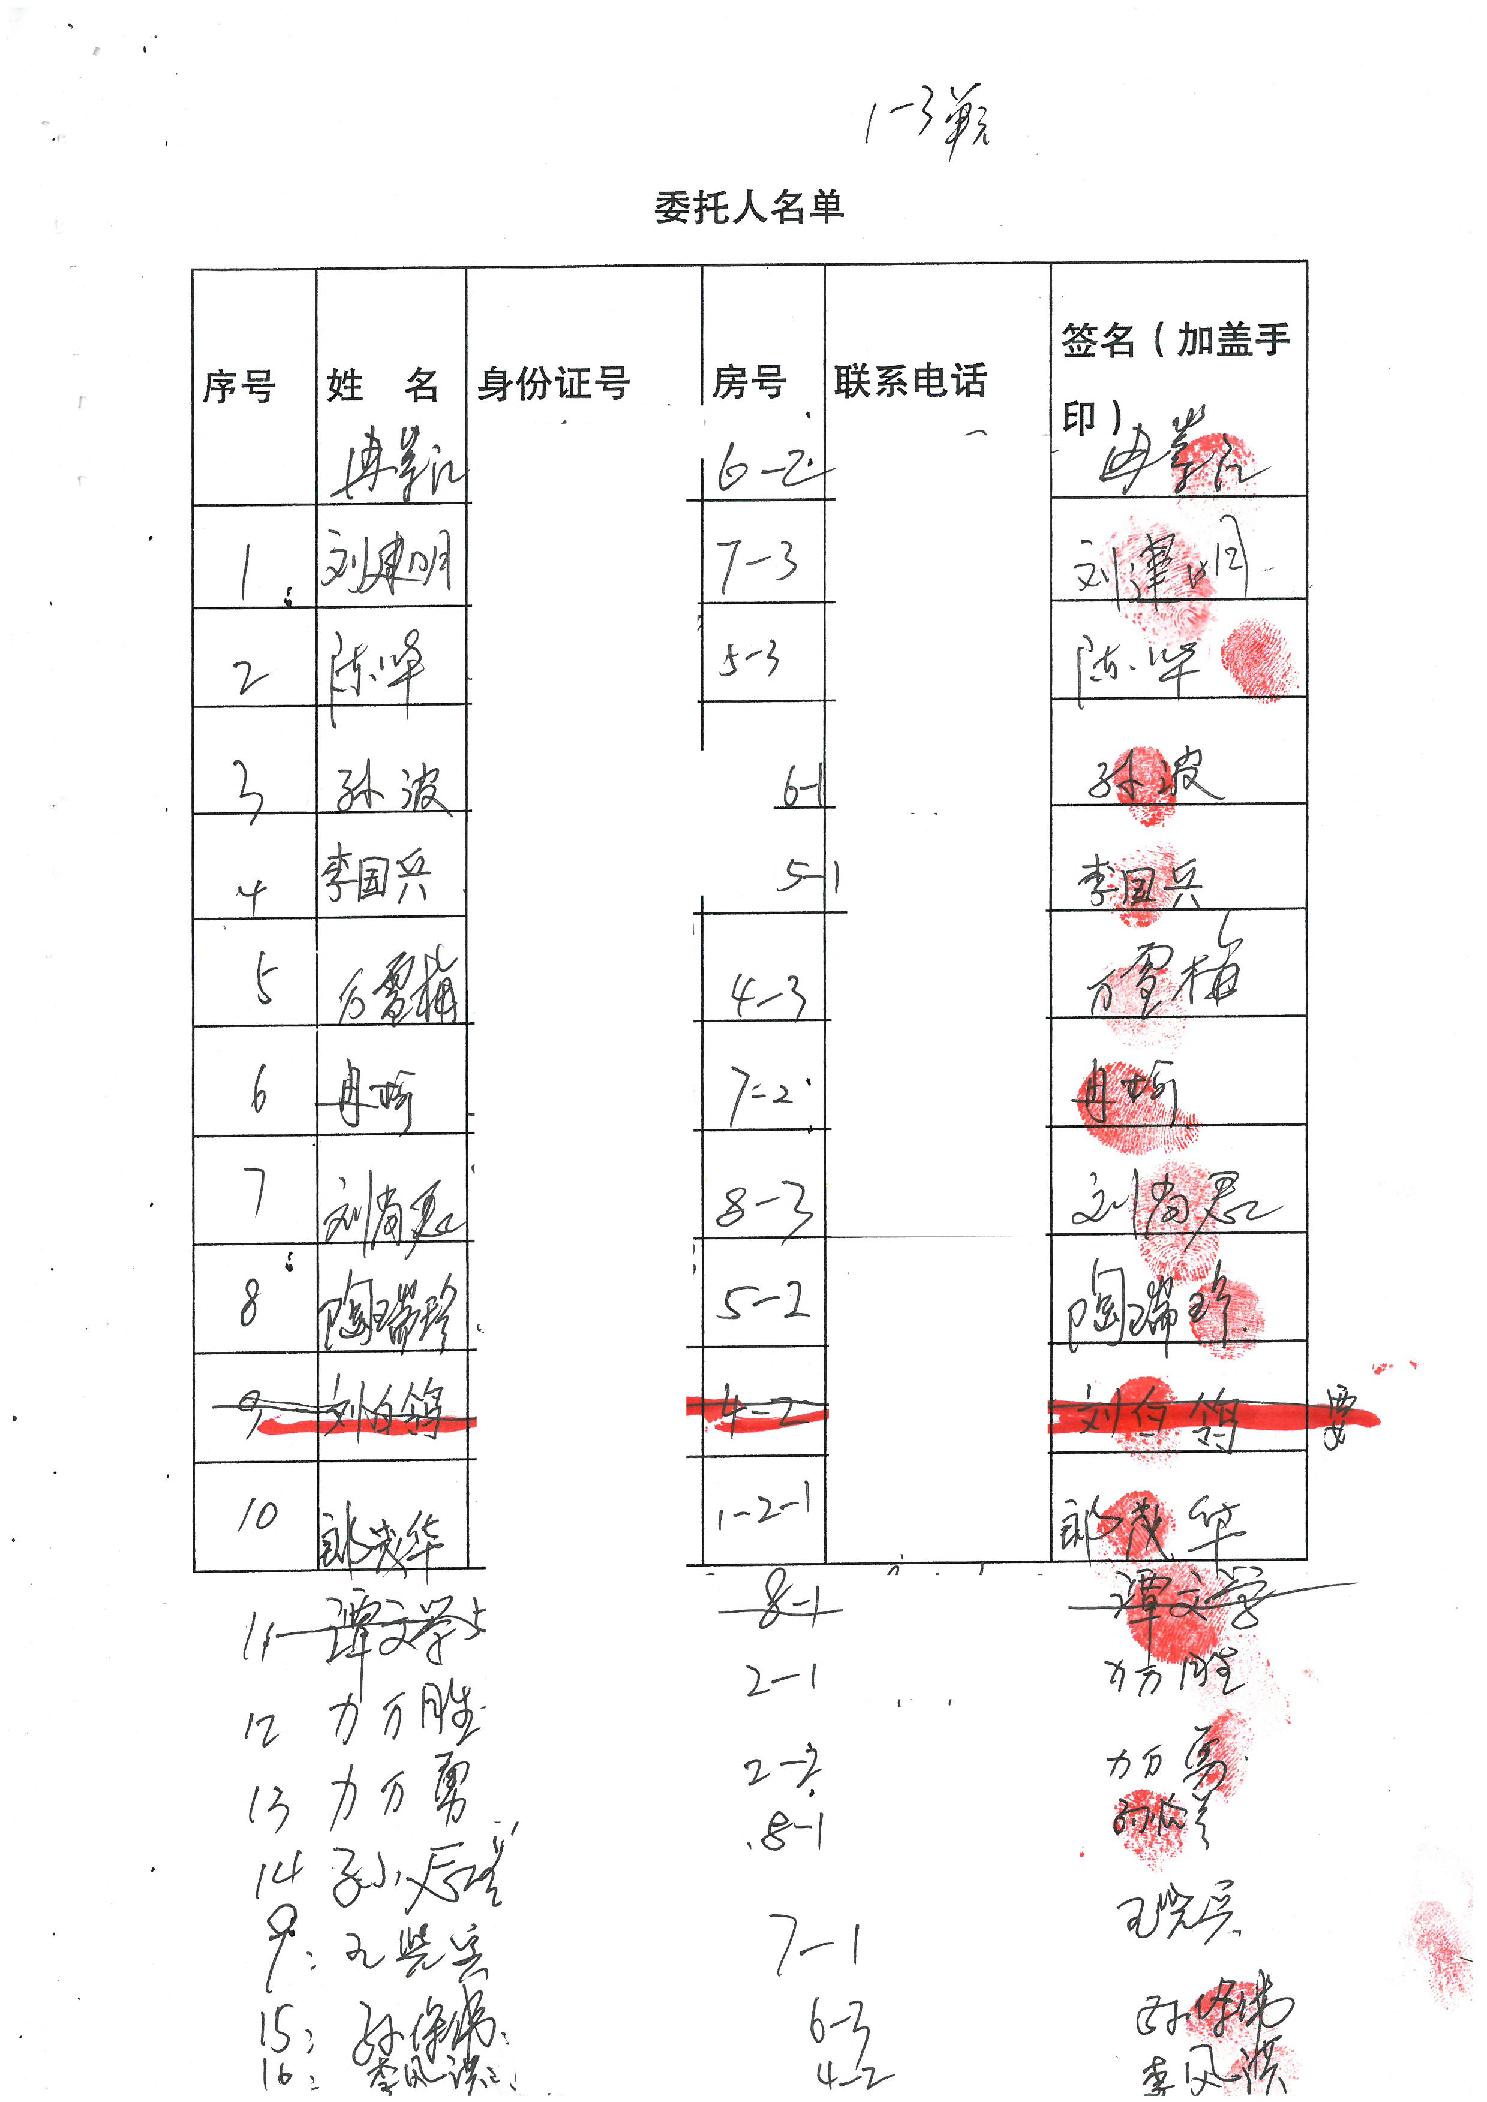 1-3单元
委托人名单
序号 姓 名 身份证号 房号 联系电话 签名（加盖手印）
冉 江 6-2 冉 江
1 刘建明 7-3 刘建明
2 陈华 5-3 陈华
3 孙波 6-1 孙波
4 李国兴 5-1 李国兴
5 方雪梅 4-3 方雪梅
6 冉 7-2 冉
7 刘尚君 8-3 刘尚君
8 陶瑞珍 5-2 陶瑞珍
9 刘白鸽 4-2 刘白鸽
10 郎茂华 1-2-1 郎茂华
11 谭文学 8-1 谭文学
12 方胜 2-1 方胜
13 方勇 2-2 方勇
14 孙 8-1
9: 兵 7-1 兵
15: 孙 6-3 孙
16: 李凤 4-2 李凤